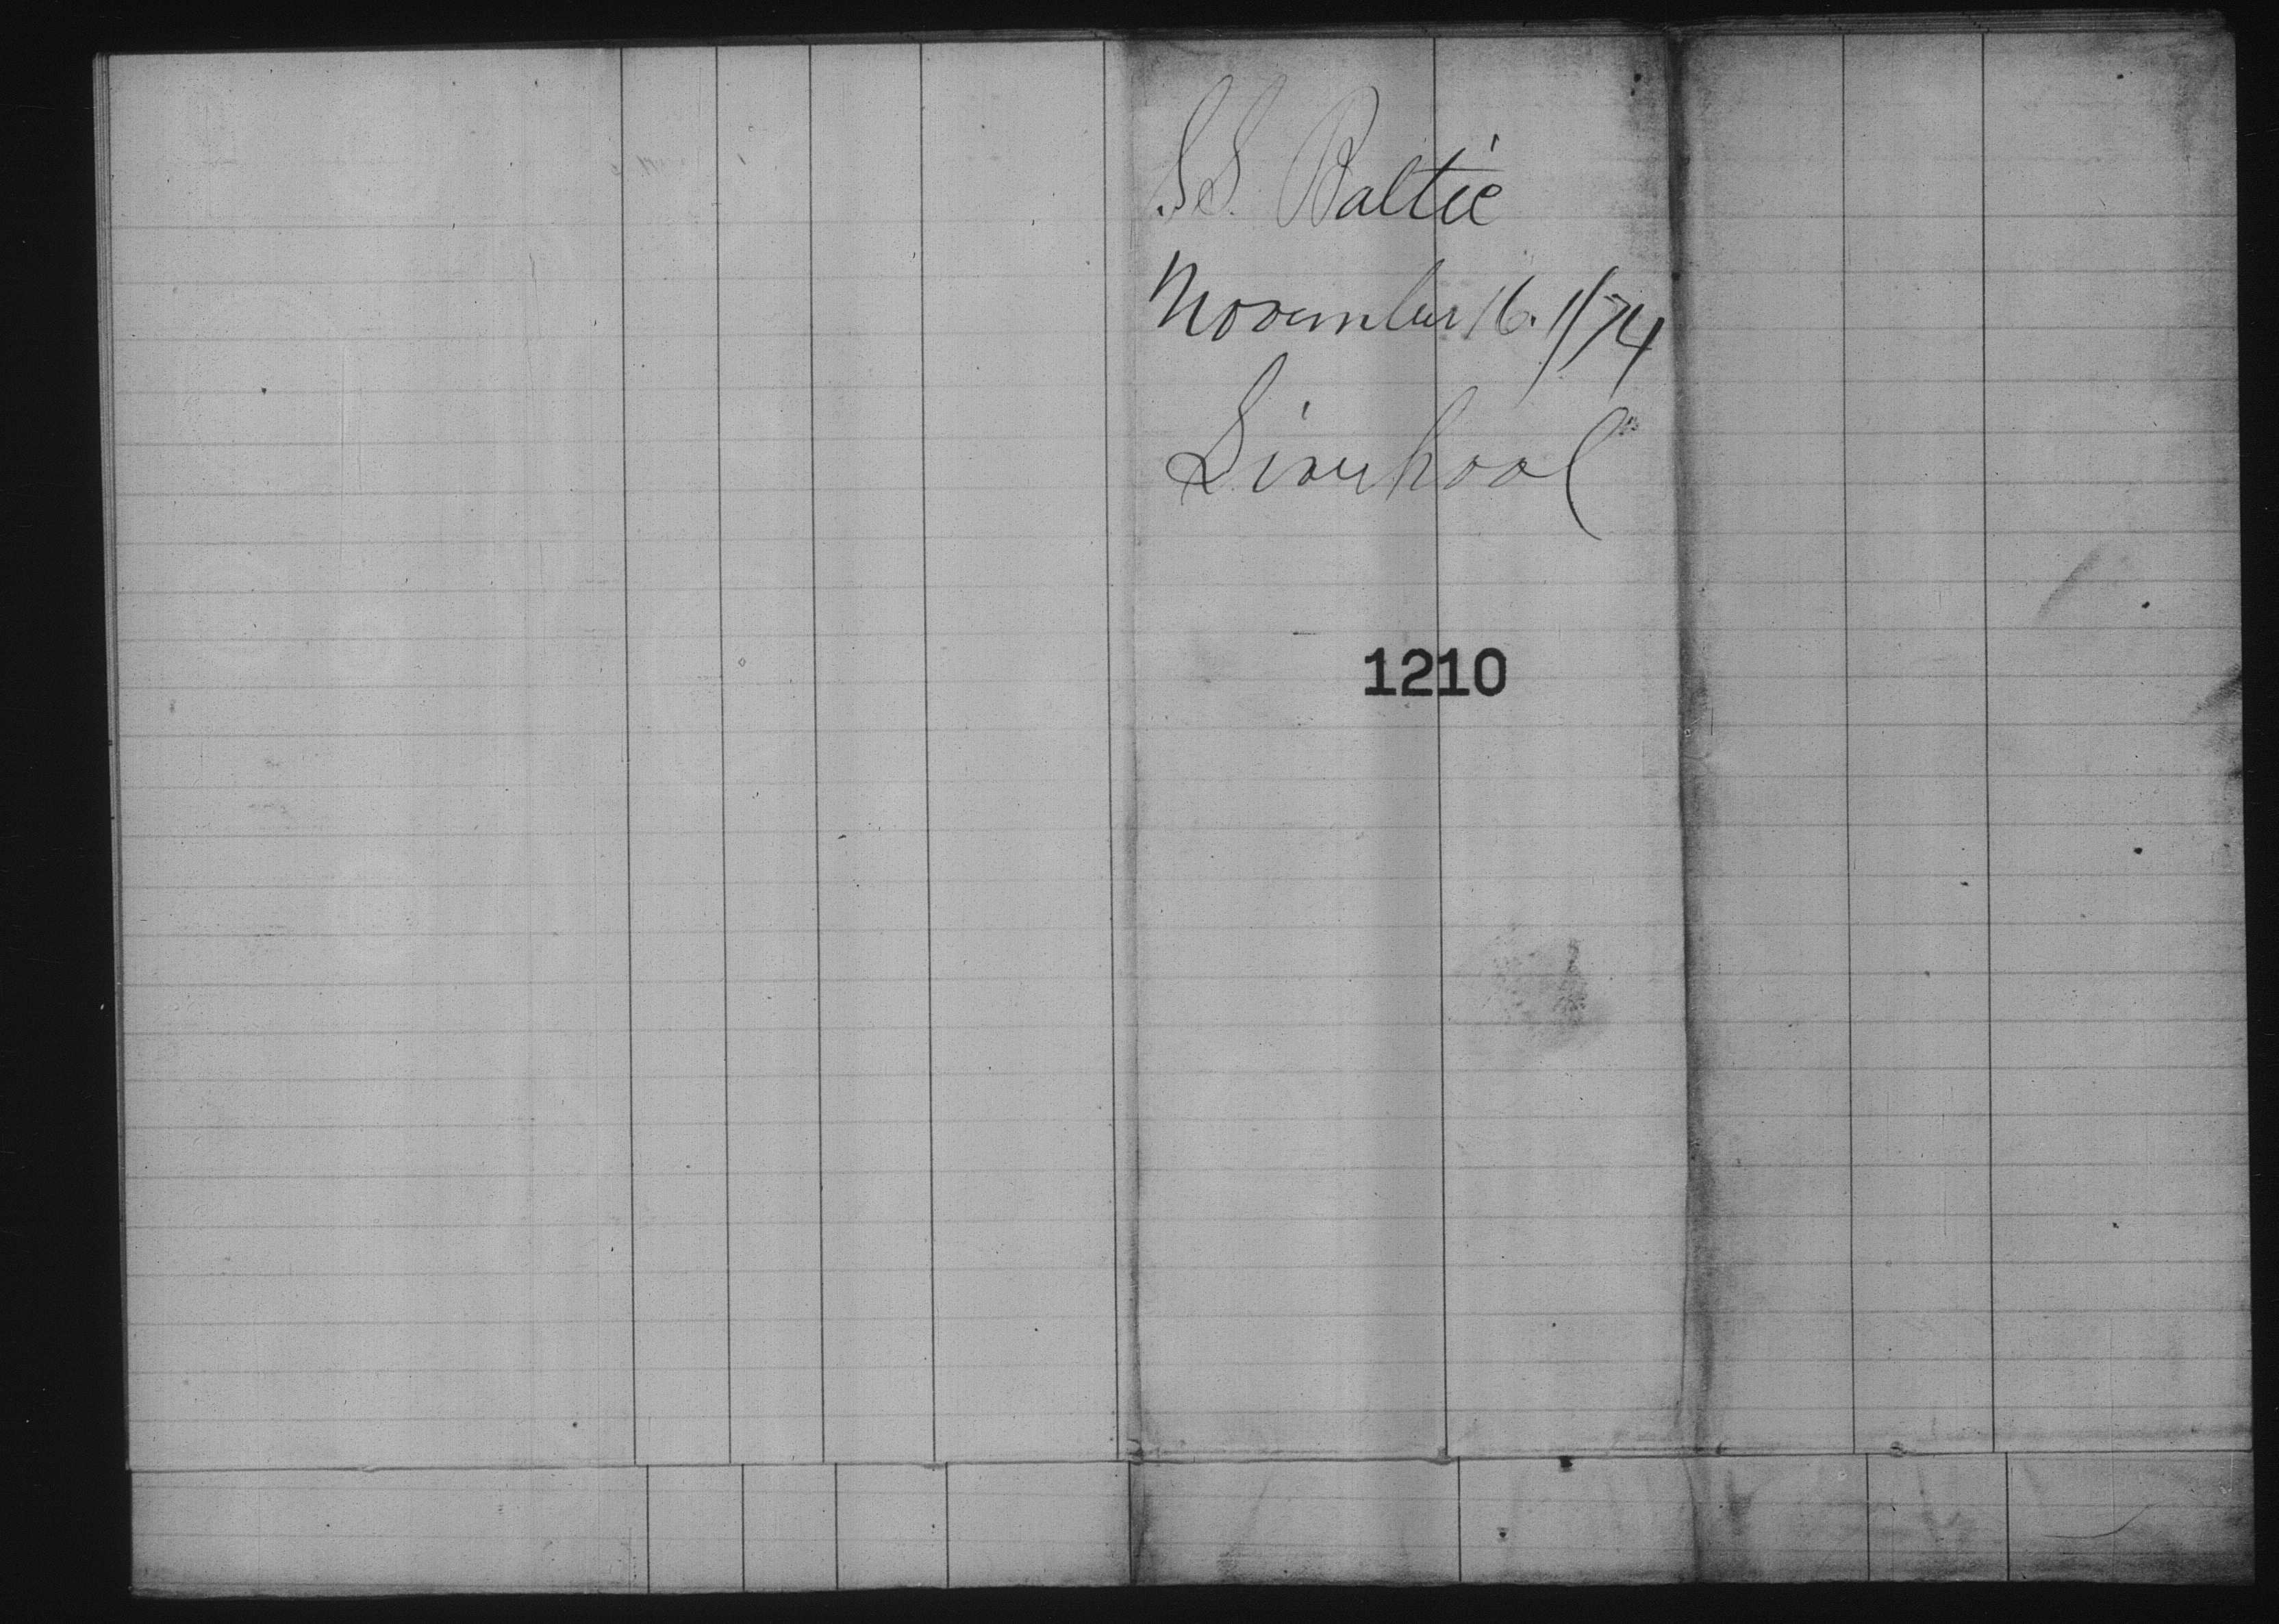 S.S. Baltic
November 16. 1/74
Liverpool
1210